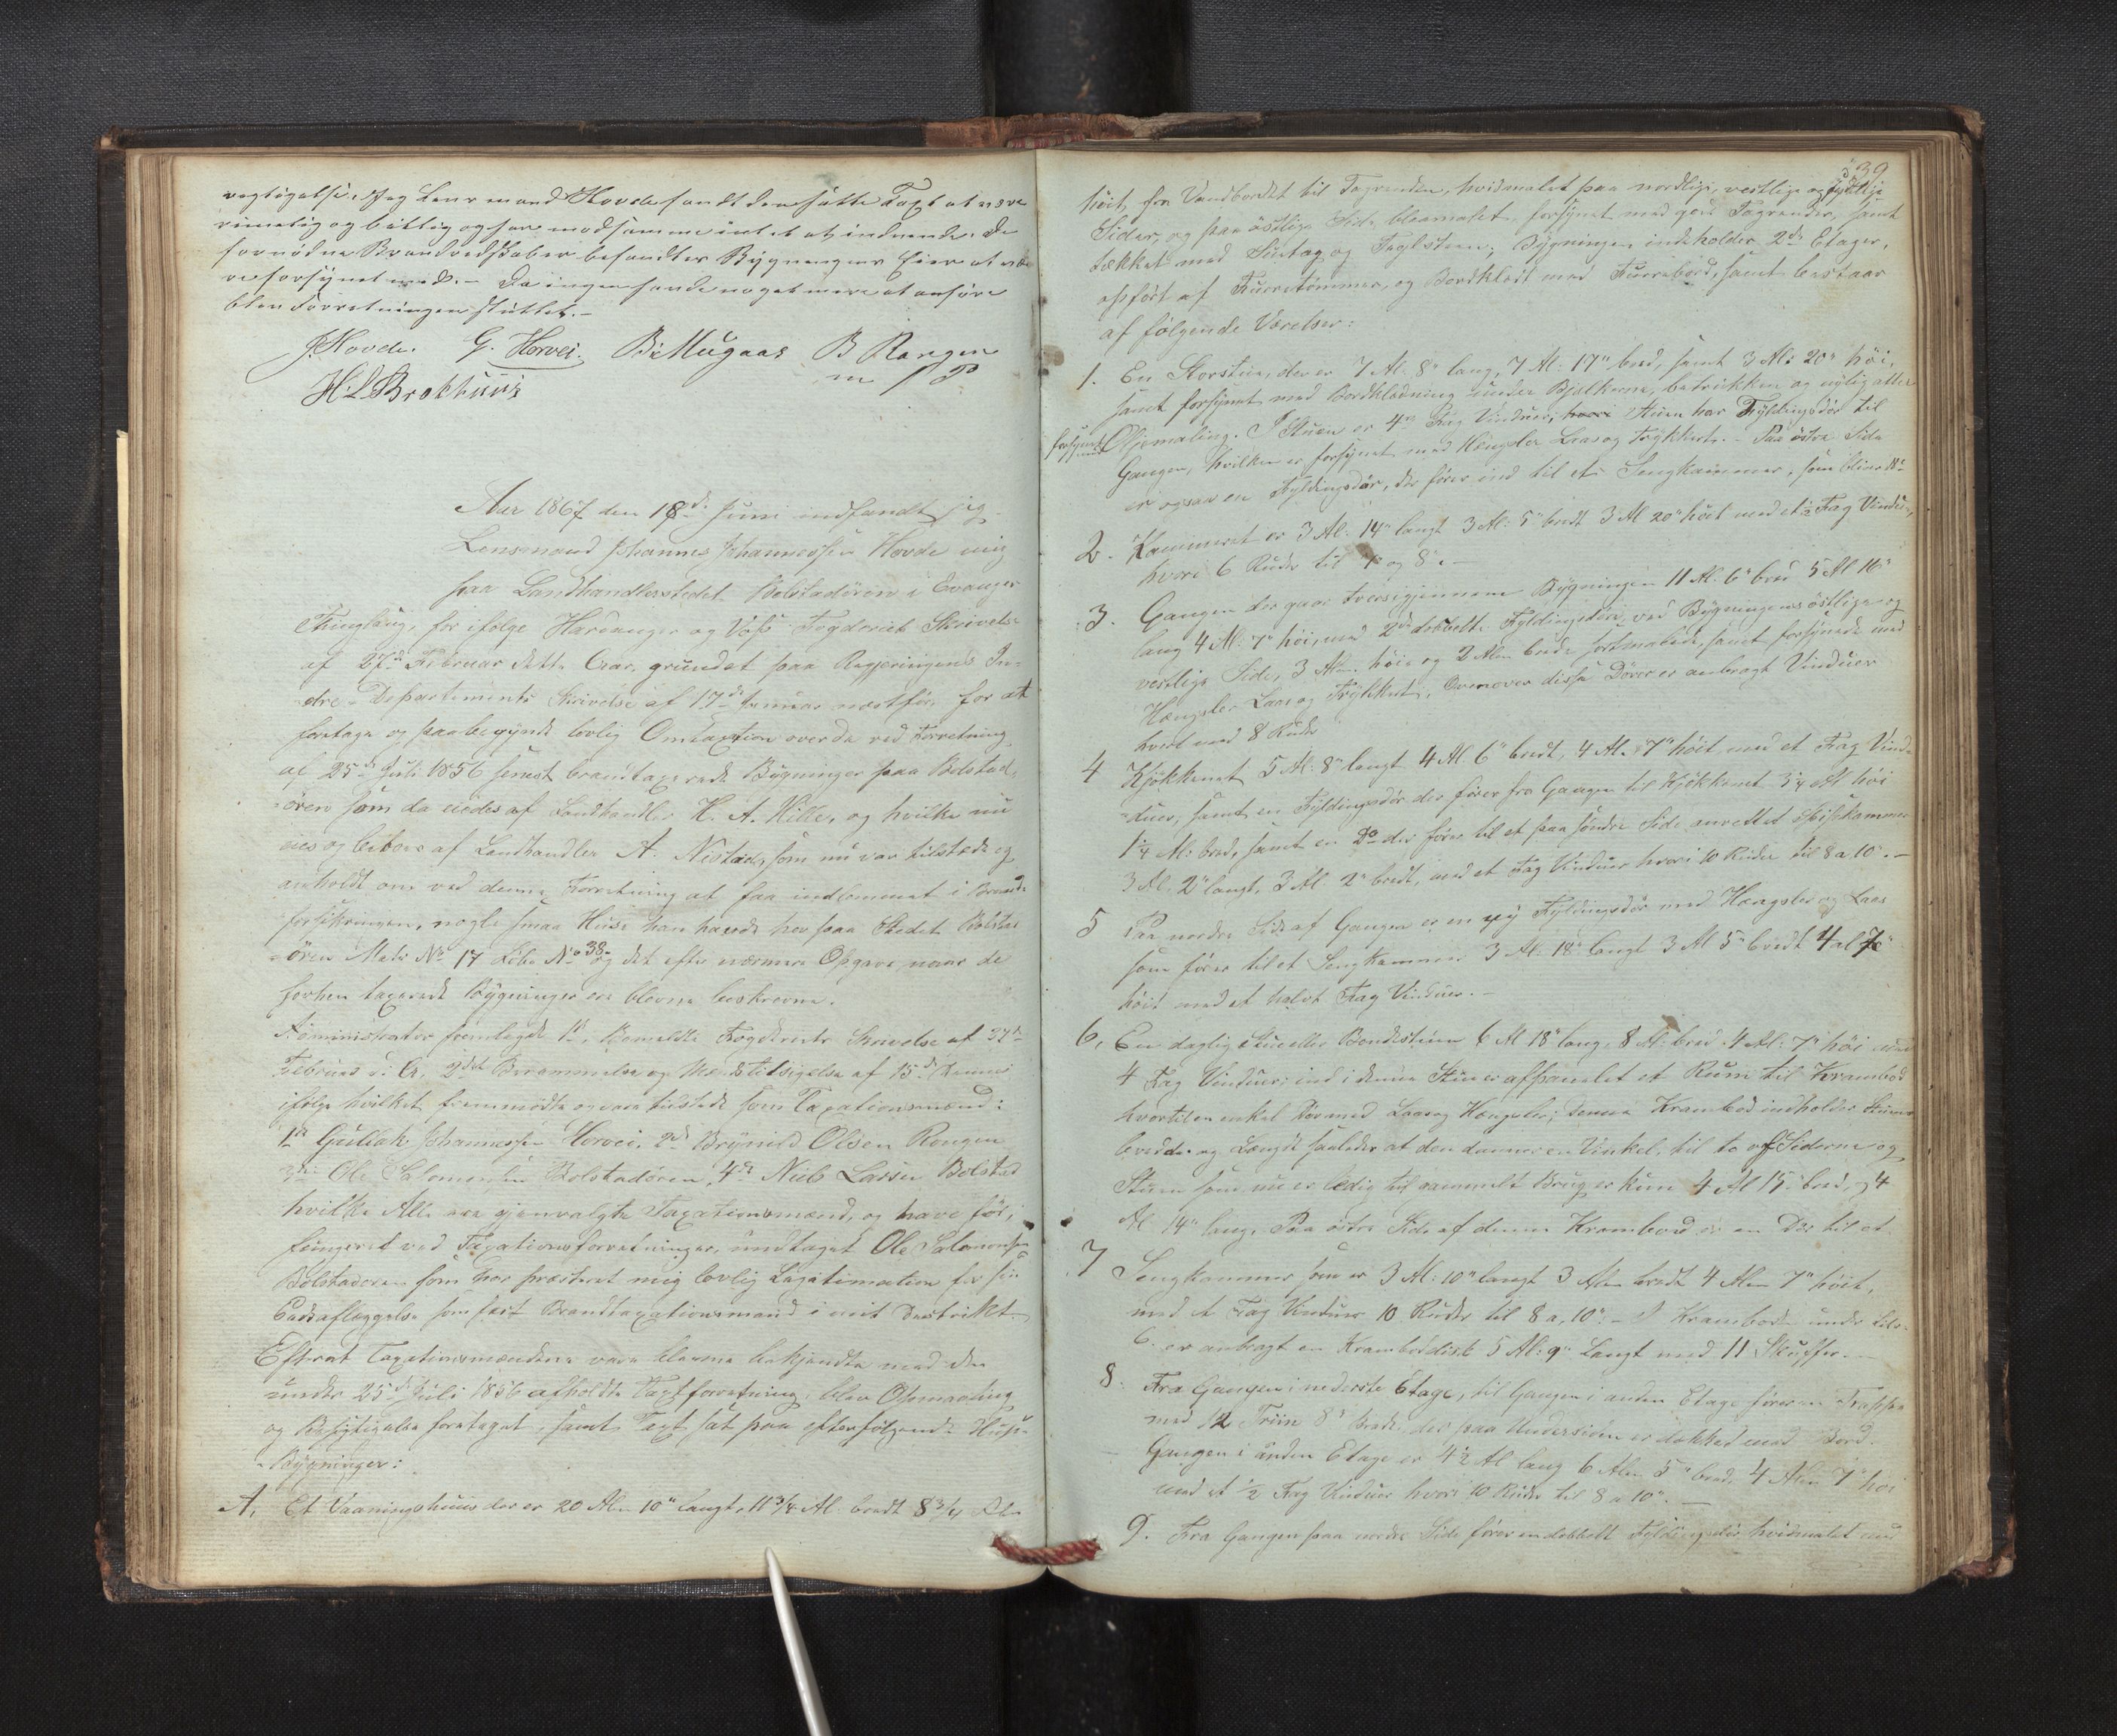 vegtigelse. Jeg Lensmand Hovde fandt den satte Taxt at være
rimelig og billig og har mod samme intet at indvende. De
fornødne Brandredskaber befandtes Bygningens Eier at væ
re forsynet med. – Da ingen havde noget mere at anføre
blev Forretningen sluttet. –
J Hovde. G. Horvei. B: Mugaas B Rongen
H. L Brokhuus m / P
Aar 1867 den 18de Juni indfandt jeg
Lensmand Johannes Johannessen Hovde mig
paa Landhandlerstedet Bolstadøren i Evanger
Thinglaug, for ifølge Hardanger og Voss Fogderiets Skrivelse
af 27de Februar dette Aar, grundet paa Regjeringens In-
dre-Departements Skrivelse af 17de Januar næstfør, for at
foretage og paabegynde lovlig Omtaxtion over de ved Forretning
af 25de Juli 1856 senest brandtaxerede Bygninger paa Bolstad-
øren som da eiedes af Landhandler H. A. Wille, og hvilke nu
eies og beboes af Landhandler A. Nestaas, som nu var tilstede og
anholdt om ved denne Forretning at faa indlemmet i Brand-
forsikringen, nogle smaa Huse han havde her paa Stedet Bolstad-
øren Matr No 17 Løbe No 38 og det efter nærmere Opgave naar de
forhen taxerede Bygninger ere blevne beskrevne.
Administrator fremlagde 1st, Bemeldte Fogderiets Skrivelse af 27de
Februar d: A. 2det Berammelse og Mændstilsigelse af 15de dennes
ifølge hvilket fremmødte og vare tilstede som Taxationsmænd:
1ste Gullak Johannessen Horvei, 2de Brynild Olsen Rongen
3de Ole Salomonsen Bolstadøren, 4de Niels Lassen Bolstad
hvilke Alle ere gjenvalgte Taxationsmænd, og have før
fungeret ved Taxationsforretninger, undtaget Ole Salomonsen
Bolstadøren som har præsteret mig lovlig Legitimation for sin
Edsaflæggelse som fast Brandtaxationsmand i mit Distrikt.
Efterat Taxationsmændene vare blevne bekjendte med den
under 25de Juli 1856 afholdte Taxtforretning, blev Opmaaling
og Besigtigelse foretaget, samt Taxt sat paa efterfølgende Huse
Bygninger:
A, Et Vaaningshuus der er 20 Al. 10" langt, 11 3/4 Al. bredt 8 3/4 Al.
39
høit, fra Vandbordet til Tagrenden, hvidmalet paa nordlige, vestlige og sydlige
Sider, og paa østlige Side blaamalet, forsynet med gode Tagrender, samt
tækket med Sutag og Taglsteen; Bygningen indeholder 2de Etager,
opført af Furretømmer, og Bordklædt med Furrebord, samt bestaar
af følgende Værelser:
1. En Storstue, der er 7 Al. 8" lang, 7 Al. 17" bred, samt 3 Al: 20" høi,
samt forsynet med Bordklædning under Bjelkerne, betrukken og nylig atter
forsynet med Oljemaling. I Stuen er 4re Fag Vinduer, Stuen har Fyldingsdør til
Gangen, hvilken er forsynet med Hængsler Laas og Trykkert. – Paa østre Side
er ogsaa en Fyldingsdør, der fører ind til et Sengkammer, som bliver No
2. Kammeret er 3 Al: 14" langt 3 Al: 5" bredt 3 Al 20" høit med et Fag Vinduer,
hvori 6 Ruder til og 8". –
3. Gangen der gaar tversigjennem Bygningen 11 Al. 6" bred 5 Al 16"
lang 4 Al: 7" høi, med 2de dobbelte Fyldingsdøre, ved Bygningens østlige og
vestlige Side, 3 Alen høie og 2 Alen brede sortmalede, samt forsynede med
Hængsler Laas og Trykkert, Ovenover disse Døre er anbragt Vinduer
hvert med 8 Ruder
4 Kjøkkenet 5 Al: 8" langt 4 Al 6" bredt, 4 Al. 7" høit med et Fag Vind-
duer, samt en Fyldingsdør der fører fra Gangen til Kjøkkenet 3 1/4 Al høi
1 1/4 Al: bred, samt en Do der fører til et paa søndre Side anrettet Spisskammer
3 Al. 2" langt, 3 Al 2" bredt, med et Fag Vinduer hvori 10 Ruder til 8 a 10". –
5 Paa nordre Side af Gangen er en ny Fyldingsdør med Hængsler og Laas
som fører til et Sengkammer 3 Al. 18" langt 3 Al 5" bredt 4 al 7"
høit med et halvt Fag Vinduer. –
6, En daglig Stue eller Bondestuen 6 Al 18" lang, 8 Al. bred 4 Al: 7" høi med
4 Fag Vinduer; ind i denne Stue er afpanelet et Rum til Krambod
hvortil en enkel Dør med Laas og Hængsler; denne Krambod indholder Stuens
bredde og Længde saaledes at den danner en Vinkel, til to af Siderne og
Stuen som nu er ledig til gammelt Brug er kun 4 Al 15" bred, og 4
Al 14" lang. Paa østre Side af denne Krambod er en Dør til et
7 Sengkammer som er 3 Al: 10" langt 3 Alen bredt 4 Alen 7" høit,
med et Fag Vinduer 10 Ruder til 8 a 10". – I Kramboden under Litr.
6. er anbragt en Kramboddisk 5 Al: 9" Langt med 11 Skuffer. –
8. Fra Gangen i nederste Etage, til Gangen i anden Etage fører en Trappe
med 12 Triin 8" brede, der paa Undersiden er dækket med Bord.
Gangen i anden Etage er 4 1/2 Al lang 6 Alen 5" bred, 4 Alen 7" høi
med et 1/2 Fag Vinduer hvori 10 Ruder til 8 a 10". –
9. Fra Gangen paa nordre Side fører en dobbelt Fyldingsdør hvidmalet med